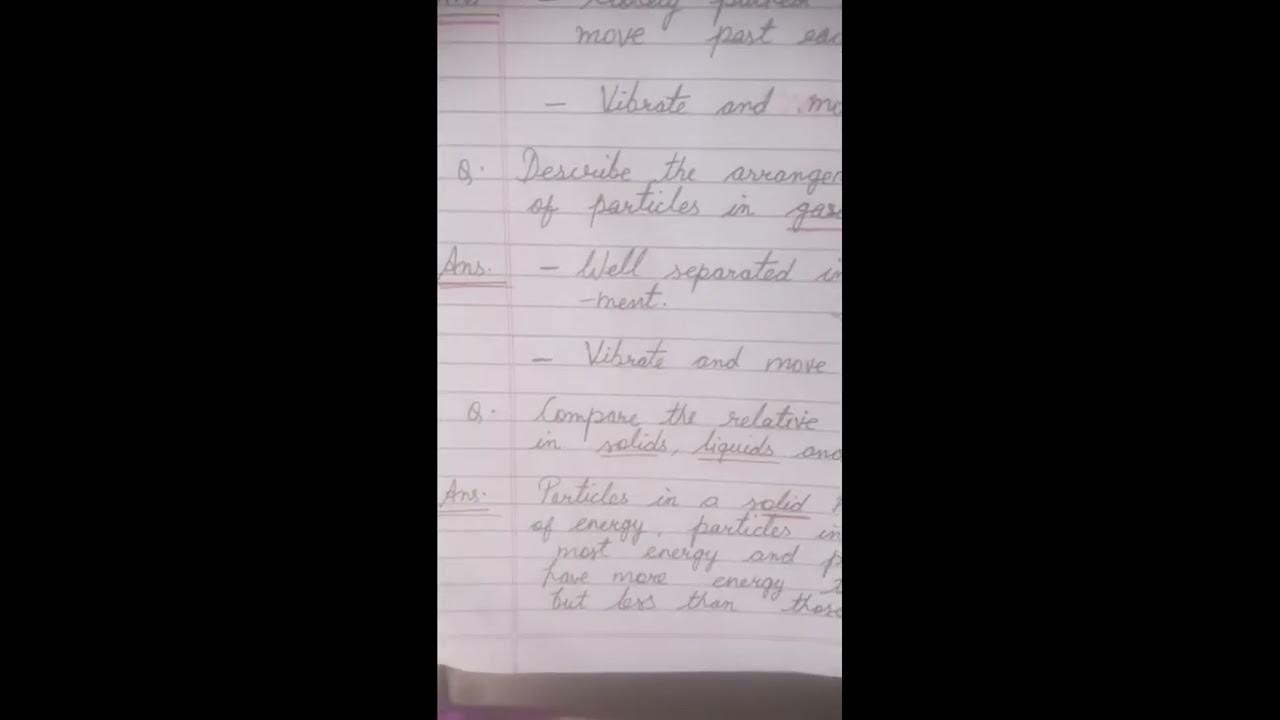 move past eac
- Vibrate and mo
Q. Describe the arrangem
of particles in gas
Ans. - Well separated in
-ment.
- Vibrate and move
Q. Compare the relative
in solids, liquids and
Ans. Particles in a solid
of energy, particles in
most energy and p
have more energy
but less than those